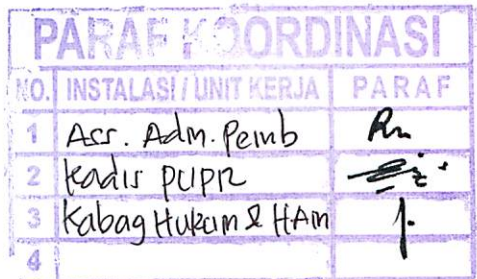 PARAF KOORDINASI
NO. INSTALASI / UNIT KERJA PARAF
1 Ass. Adm. Pemb
2 Kadis PUPR
3 Kabag Hukum & HAM
4